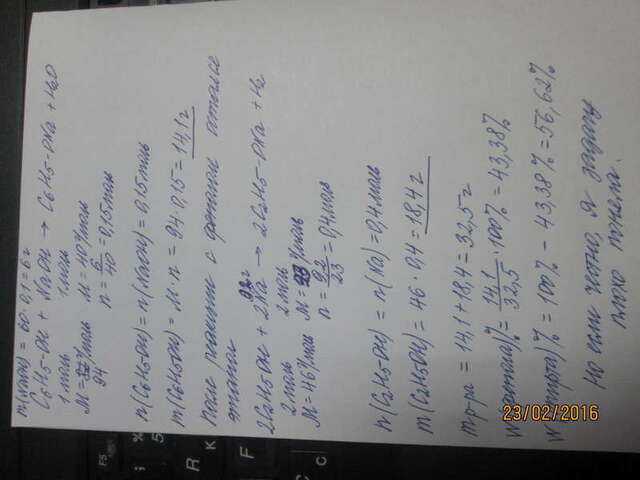 m(NaOH) = 60 · 0,1 = 6 г
C6H5-OH + NaOH → C6H5-ONa + H2O
1 моль 1 моль
M = г/моль M = 40 г/моль
94 n = 6/40 = 0,15 моль
n(C6H5OH) = n(NaOH) = 0,15 моль
m(C6H5OH) = M · n = 94 · 0,15 = 14,1 г
После реакции с фенолом остался
этанол
9,2 г
2C2H5OH + 2Na → 2C2H5-ONa + H2
2 моль 2 моль
M = 46 г/моль M = 23 г/моль
n = 9,2/23 = 0,4 моль
n(C2H5OH) = n(Na) = 0,4 моль
m(C2H5OH) = 46 · 0,4 = 18,4 г
m р-ра = 14,1 + 18,4 = 32,5 г
W(фенола)% = 14,1/32,5 · 100% = 43,38%
W(спирта)% = 100% - 43,38% = 56,62%
но если честно, я задачу
плохо поняла.
23/02/2016
F5
%
5
R
K
F
C
с